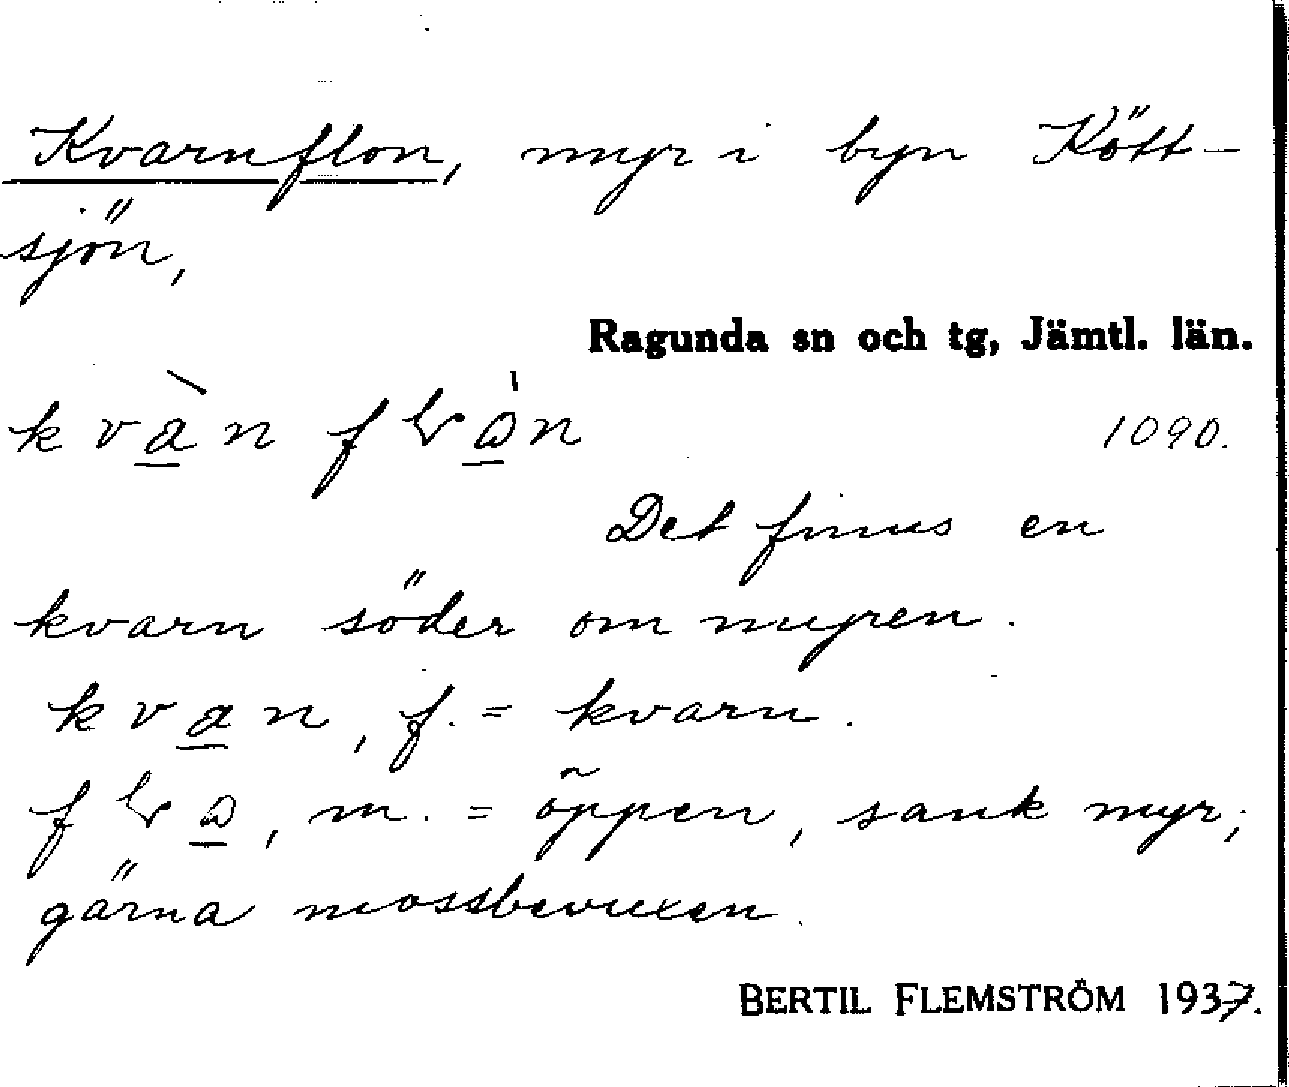 Kvarnflon, myr i byn Kött-
sjön,
Ragunda sn och tg, Jämtl. län.
1090.
Det finns en
kvarn söder om myren.
kvan, f. = kvarn.
m. = öppen, sank myr;
gärna mossbevuxen.
BERTIL FLEMSTRÖM 1937.